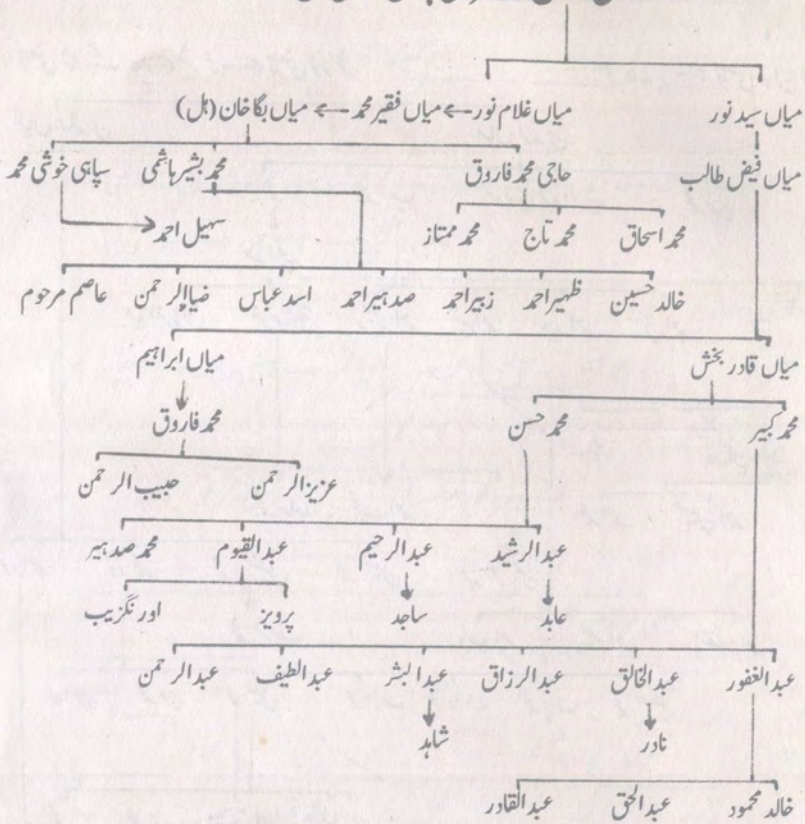 میاں سید نور میاں غلام نور ← میاں فقیر محمد ← میاں بگا خان (ہل)
میاں فیض طالب حاجی محمد فاروق محمد بشیر ہاشمی سپاہی خوشی محمد
محمد اسحاق محمد تاج محمد ممتاز سہیل احمد
خالد حسین ظہیر احمد زبیر احمد صد ہیر احمد اسد عباس ضیاالرحمن عاصم مرحوم
میاں قادر بخش میاں ابراہیم
محمد کبیر محمد حسن محمد فاروق
عزیز الرحمن حبیب الرحمن
عبدالرشید عبدالرحیم عبدالقیوم محمد صد ہیر
عابد ساجد پرویز اورنگزیب
عبدالغفور عبدالخالق عبدالرزاق عبدالبشر عبدالطیف عبدالرحمن
نادر شاہد
خالد محمود عبدالحق عبدالقادر